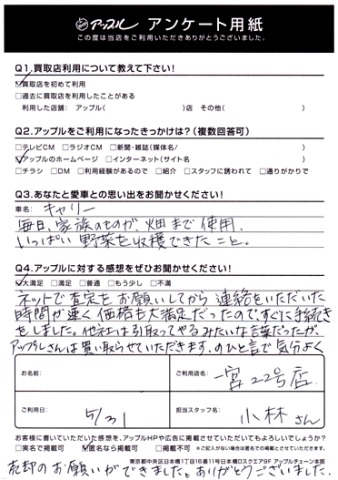 アップル アンケート用紙
この度は当店をご利用いただきありがとうございました。
Q1.買取店利用について教えて下さい!
☑買取店を初めて利用
□過去に買取店を利用したことがある
利用した店舗: アップル( )店 その他( )
Q2.アップルをご利用になったきっかけは?(複数回答可)
□テレビCM □ラジオCM □新聞・雑誌(媒体名/ )
☑アップルのホームページ □インターネット(サイト名 )
□チラシ □DM □利用経験があるので □紹介 □スタッフに誘われて □通りがかりで
Q3.あなたと愛車との思い出をお聞かせください!
車名: キャリー
毎日、家族のものが、畑まで使用、
いっぱい野菜を収穫できたこと。
Q4.アップルに対する感想をぜひお聞かせください!
☑大満足 □満足 □普通 □もう少し □不満
ネットで査定をお願いしてから連絡をいただいた
時間が速く価格も大満足だったので、すぐに手続き
をしました。他社は引取ってやるみたいな言葉だったが、
アップルさんは買い取らせていただきます。のひと言で気分よく
お名前:
ご利用店名: 一宮22号店.
ご利用日: 5/31
担当スタッフ名: 小林さん
お客様に書いていただいた感想を、アップルHPや広告に掲載させていただいてもよろしいでしょうか?
□実名で掲載可 ☑匿名なら掲載可 □掲載不可 ※ご記入がない場合は匿名での掲載とさせていただきます。
東京都中央区日本橋1丁目16番11号日本橋Dスクエア9F アップルチェーン本部
売却のお願いができました。ありがとうございました.